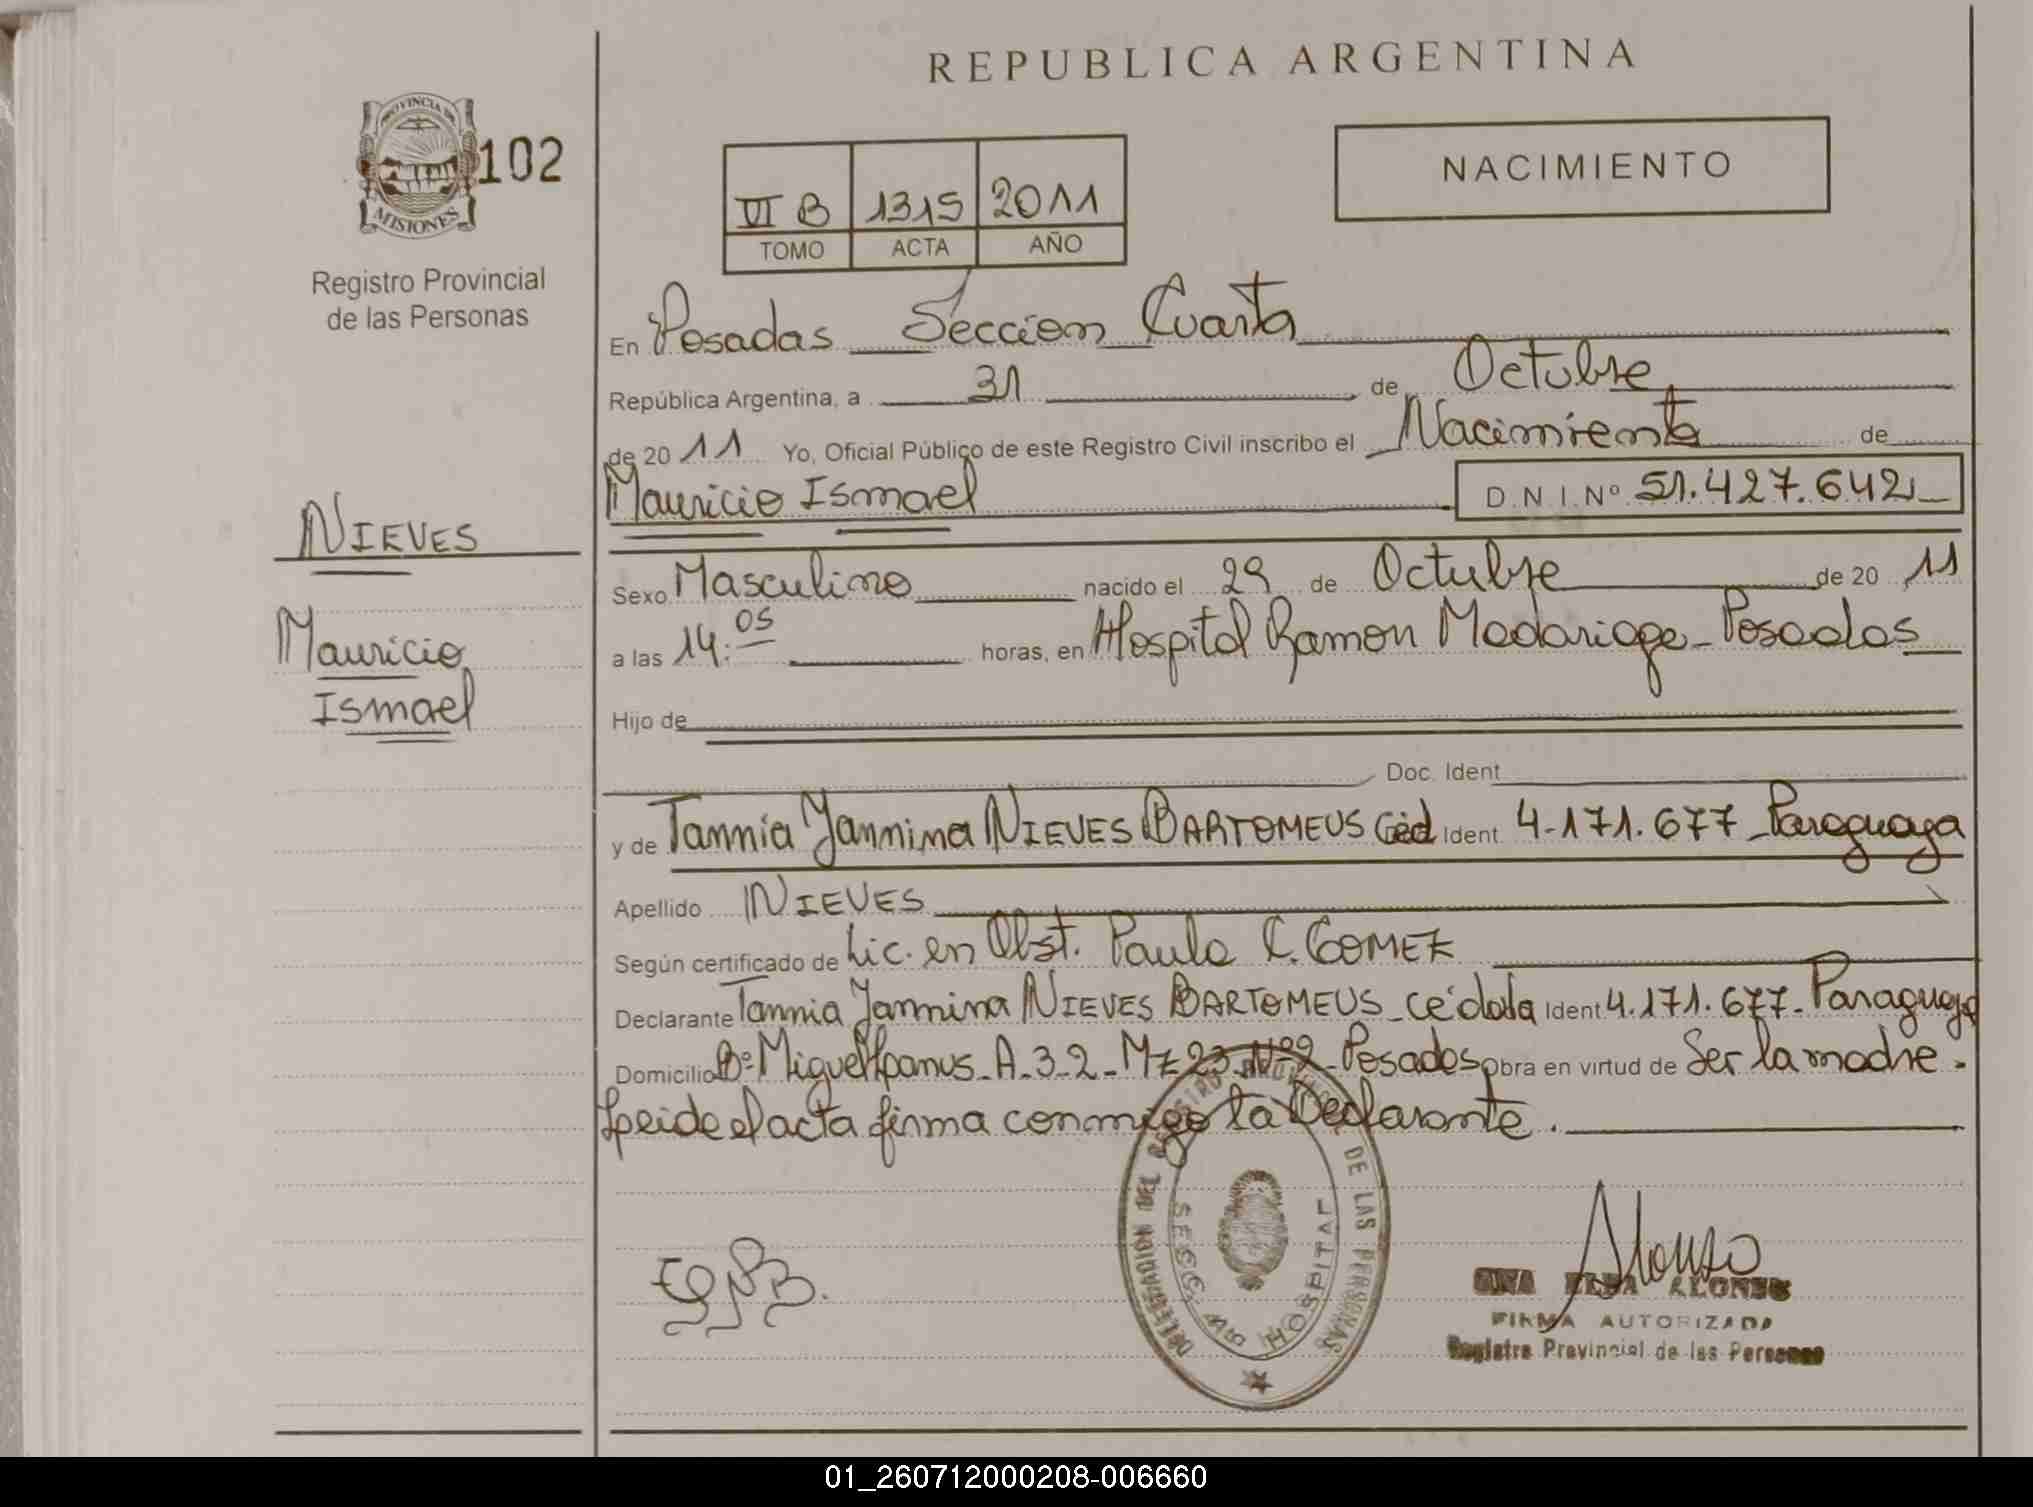 REPUBLICA ARGENTINA
PROVINCIA DE
MISIONES
102
Registro Provincial
de las Personas
VI B 1315 2011
TOMO ACTA AÑO
NACIMIENTO
En Posadas Sección Cuarta
República Argentina, a 31 de Octubre
de 2011 Yo, Oficial Público de este Registro Civil inscribo el Nacimiento de
Mauricio Ismael D.N.I.Nº 51.427.642
NIEVES
Mauricio
Ismael
Sexo Masculino nacido el 29 de Octubre de 2011
a las 14:05 horas, en Hospital Ramon Madariaga - Posadas
Hijo de
Doc. Ident
y de Tannia Yannina NIEVES BARTOMEUS Céd Ident 4.171.677 - Paraguaya
Apellido NIEVES
Según certificado de Lic. en Obst. Paula C. GOMEZ
Declarante Tannia Yannina NIEVES BARTOMEUS - cédula Ident 4.171.677 - Paraguaya
Domicilio Bº Miguel Lanus - A-3-2 - Mz 23 Nº 2 - Posadas obra en virtud de Ser la madre.
Leida el acta firma conmigo la Declarante.
DELEGACION DEL REGISTRO PROVINCIAL DE LAS PERSONAS
SECC. 4ta HOSPITAL
Alonso
ELBA ALONSO
FIRMA AUTORIZADA
Registro Provincial de las Personas
01_260712000208-006660